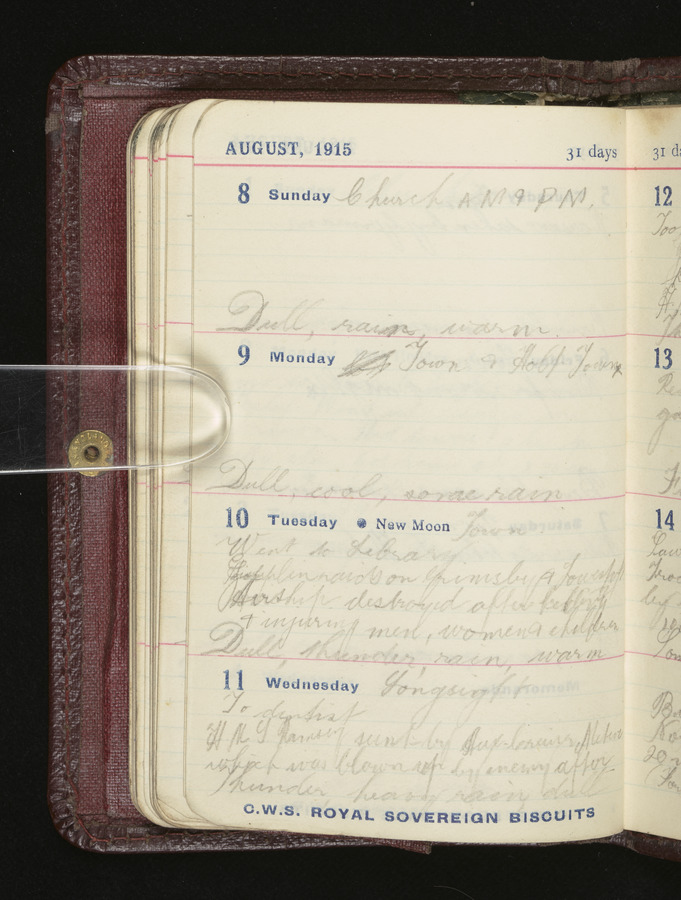 AUGUST, 1915 31 days
8 Sunday Church AM & PM.
Dull, rain, warm.
9 Monday Town &
Dull, cool, some rain
10 Tuesday New Moon Town
Went to Library
Zepplin raids on Grimsby &
Airship destroyed after killing
+ injuring men, women & children
Dull, thunder, rain, warm
11 Wednesday Longsight
To dentist
H M S Ramsey sunk by Meteor
which was blown up by enemy after
Thunder, heavy rain, dull
C.W.S. ROYAL SOVEREIGN BISCUITS
31
12
Too
13
14
Law